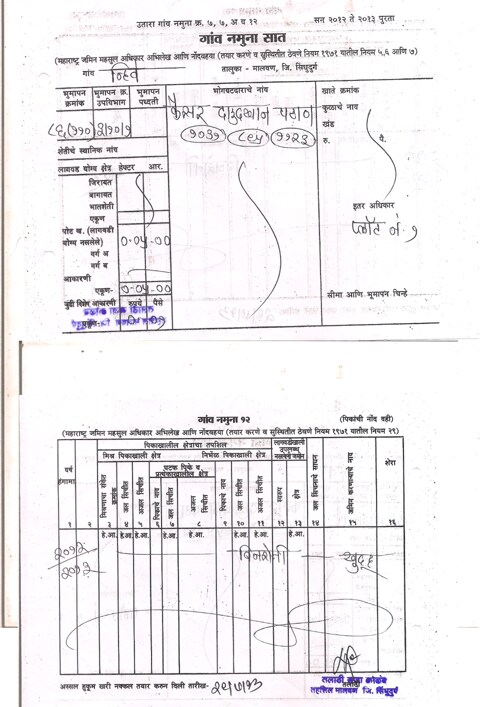 उतारा गांव नमुना क्र. ७, ७, अ व १२ सन २०१२ ते २०१३ पुरता
गांव नमुना सात
(महाराष्ट्र जमिन महसूल अधिकार अभिलेख आणि नोंदवहया (तयार करणे व सुस्थितीत ठेवणे नियम १९७१ यातील नियम ५,६ आणि ७)
गांव तालुका - मालवण, जि. सिंधुदुर्ग
भूमापन क्रमांक भूमापन क्र. उपविभाग भूमापन पध्दती भोगवटदाराचे नांव खाते क्रमांक
केसर दाउदखान पठाण कुळाचे नाव
खंड
१०३७ ८९५ ११२३ रु. पै.
शेतीचे स्थानिक नांव
लागवड योग्य क्षेत्र हेक्टर आर.
जिरायत
बागायत
भातशेती
एकूण इतर अधिकार
पोट ख. (लागवडी योग्य नसलेले) ०-०५-०० प्लॉट नं. १
वर्ग अ
वर्ग ब
आकारणी
एकूण- ०-०५-०० सीमा आणि भूमापन चिन्हे
जुडी विशेष आकारणी रुपये पैसे
गांव नमुना १२ (पिकांची नोंद वही)
(महाराष्ट्र जमिन महसूल अधिकार अभिलेख आणि नोंदवहया (तयार करणे व सुस्थितीत ठेवणे नियम १९७१ यातील नियम २९)
पिकाखालील क्षेत्रांचा तपशिल
मिश्र पिकाखालील क्षेत्र निर्भेळ पिकाखालील क्षेत्र
घटक पिके व प्रत्येकाखालील क्षेत्र
वर्ष हंगामा मिश्रणाचा संकेत क्रमांक जल सिंचीत अजल सिंचीत पिकाचे नाव जल सिंचीत अजल सिंचीत पिकाचे नाव जल सिंचीत अजल सिंचीत स्वरुप क्षेत्र जल सिंचनाचे साधन जमिन करणाऱ्याचे नाव शेरा
१ २ ३ ४ ५ ६ ७ ८ ९ १० ११ १२ १३ १४ १५ १६
हे.आ. हे.आ. हे.आ. हे.आ. हे.आ. हे.आ. हे.आ. हे.आ.
२०१२ २०१३ बिनशेती खुद्द
अस्सल हुकूम खरी नक्कल तयार करुन दिली तारीख- २९/७/१३
तलाठी
तहसिल मालवण जि. सिंधुदुर्ग